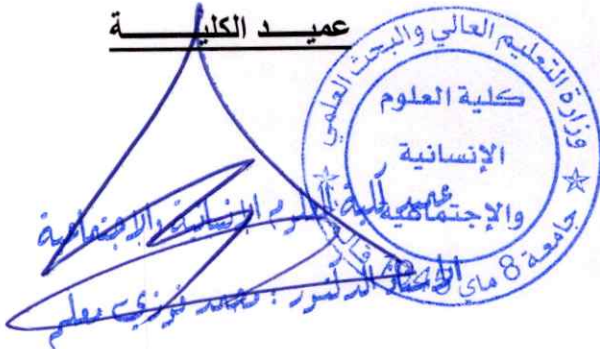 عميد الكلية
وزارة التعليم العالي والبحث العلمي
كلية العلوم
الإنسانية
والإجتماعية
جامعة 8 ماي
عميد كلية العلوم الإنسانية والاجتماعية
الأستاذ الدكتور : محمد فوزي معلم